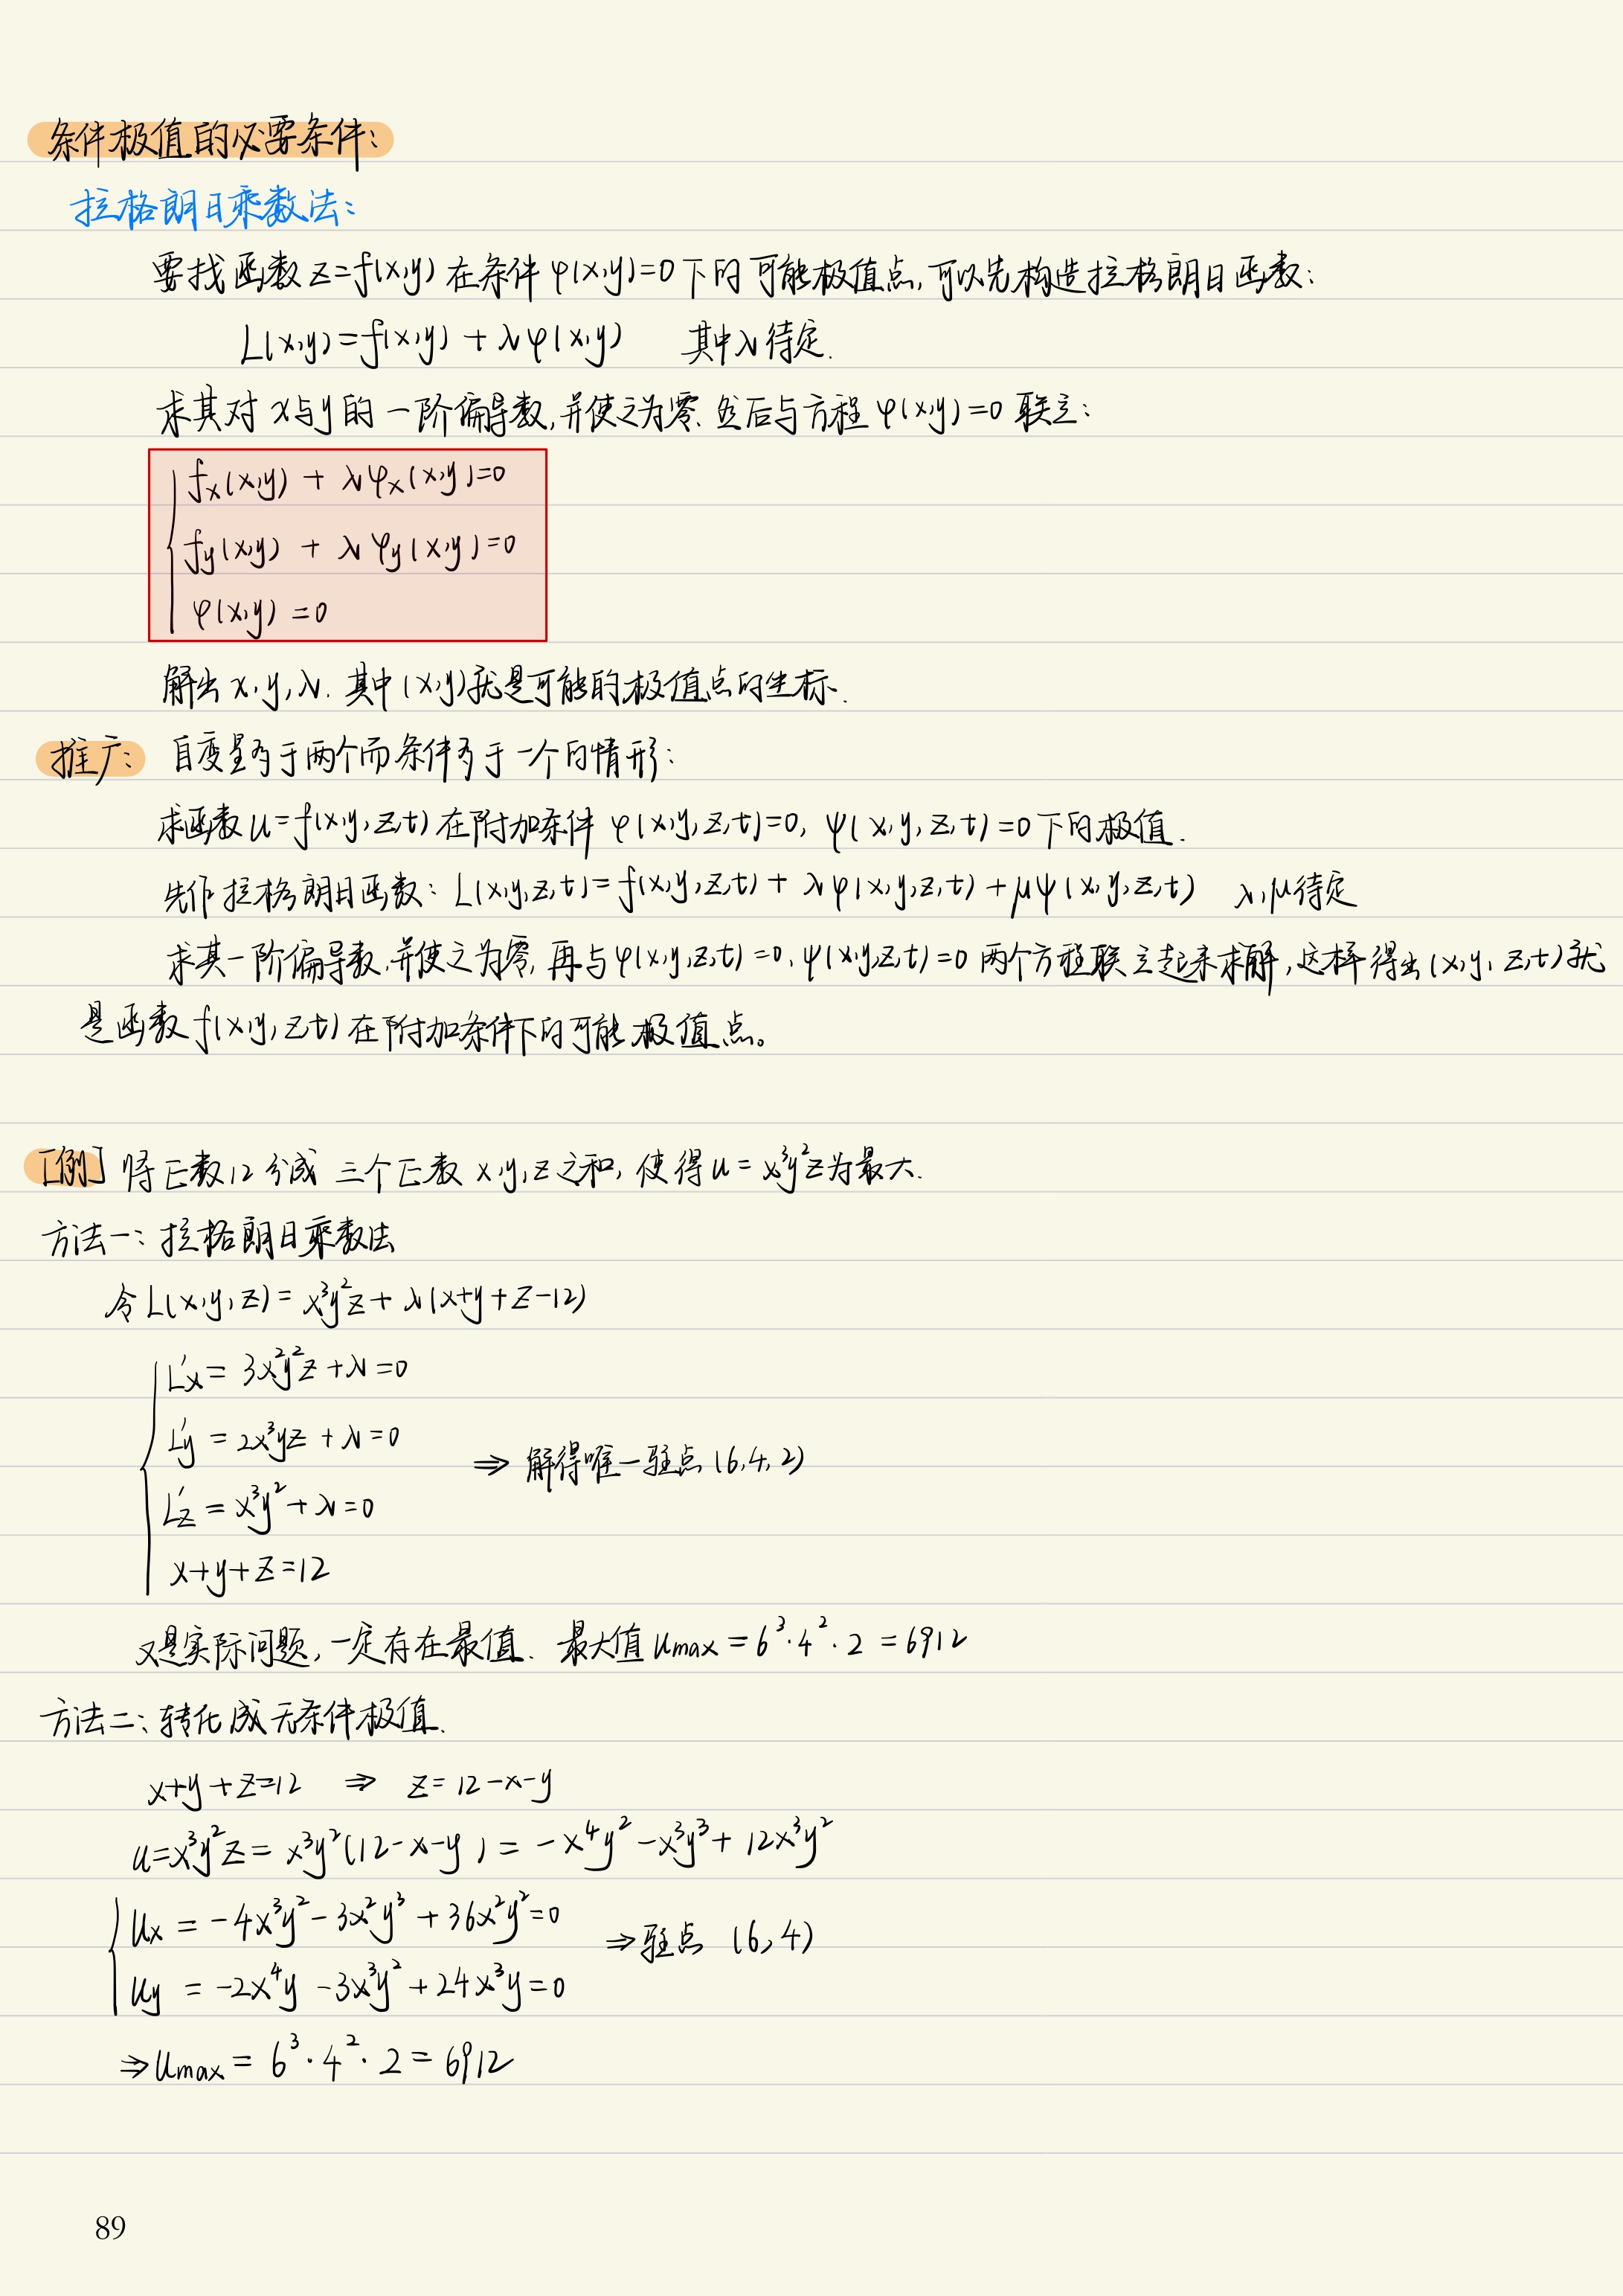 条件极值的必要条件:
拉格朗日乘数法:
要找函数 z=f(x,y) 在条件 φ(x,y)=0 下的可能极值点,可以先构造拉格朗日函数:
L(x,y)=f(x,y) + λφ(x,y) 其中λ待定.
求其对 x与y的一阶偏导数,并使之为零.然后与方程 φ(x,y)=0 联立:
fx(x,y) + λφx(x,y)=0
fy(x,y) + λφy(x,y)=0
φ(x,y) =0
解出 x,y,λ. 其中(x,y)就是可能的极值点的坐标.
推广: 自变量多于两个而条件多于一个的情形:
求函数 u=f(x,y,z,t) 在附加条件 φ(x,y,z,t)=0, ψ(x,y,z,t)=0下的极值.
先作拉格朗日函数: L(x,y,z,t)=f(x,y,z,t) + λφ(x,y,z,t) + μψ(x,y,z,t) λ,μ待定
求其一阶偏导数,并使之为零,再与φ(x,y,z,t)=0,ψ(x,y,z,t)=0 两个方程联立起来求解,这样得出(x,y,z,t)就
是函数 f(x,y,z,t) 在附加条件下的可能极值点。
[例] 将正数12分成 三个正数 x,y,z之和, 使得u = x³y²z为最大.
方法一: 拉格朗日乘数法
令L(x,y,z)= x³y²z + λ(x+y+z-12)
L'x = 3x²y²z + λ=0
L'y = 2x³yz + λ=0
⇒ 解得唯一驻点 (6,4,2)
L'z = x³y² + λ=0
x+y+z=12
又是实际问题,一定存在最值. 最大值 umax = 6³·4²·2 = 6912
方法二: 转化成无条件极值.
x+y+z=12 ⇒ z=12-x-y
u=x³y²z= x³y²(12-x-y) = -x⁴y² -x³y³ + 12x³y²
ux = -4x³y² - 3x²y³ + 36x²y²=0
⇒驻点 (6,4)
uy = -2x⁴y - 3x³y² + 24x³y=0
⇒umax = 6³·4²·2 = 6912
89